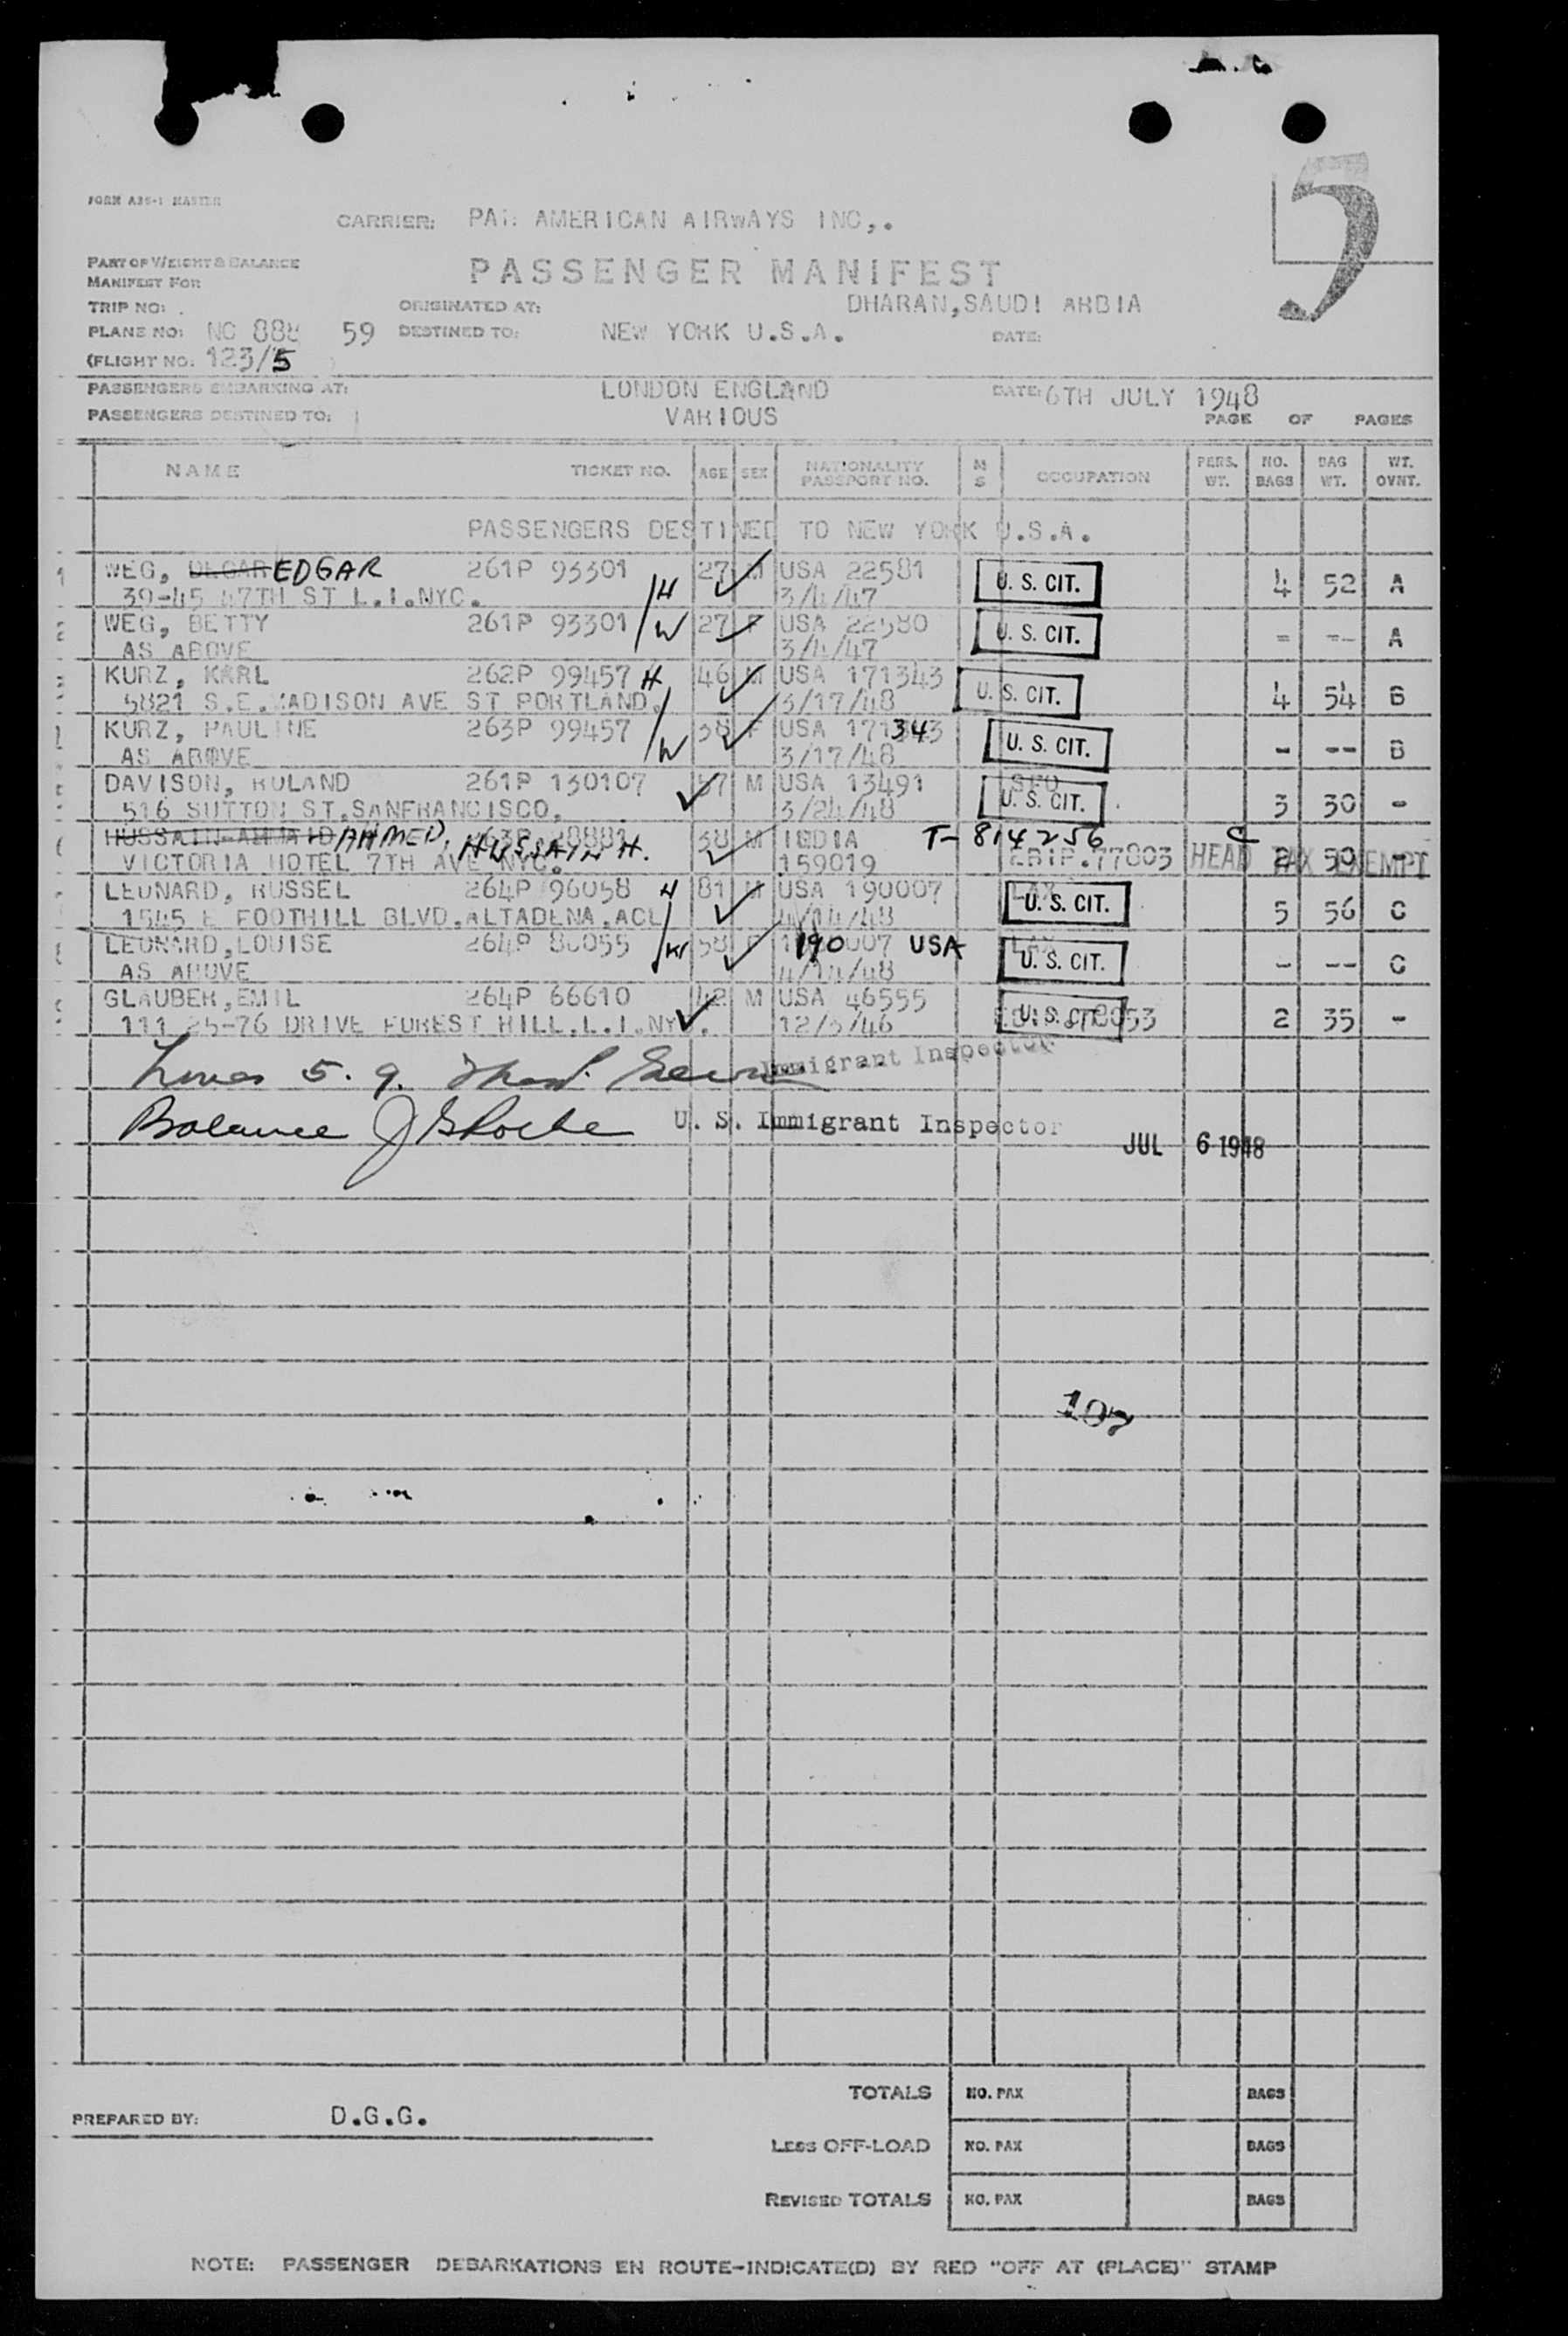 5
FORM A36-1 MASTER
CARRIER: PAN AMERICAN AIRWAYS INC,.
PART OF WEIGHT & BALANCE
MANIFEST FOR
PASSENGER MANIFEST
TRIP NO: ORIGINATED AT: DHARAN,SAUDI ARBIA
PLANE NO: NC 888 59 DESTINED TO: NEW YORK U.S.A. DATE:
(FLIGHT NO: 123/5
PASSENGERS EMBARKING AT: LONDON ENGLAND DATE: 6TH JULY 1948
PASSENGERS DESTINED TO: VARIOUS PAGE OF PAGES
NAME TICKET NO. AGE SEX NATIONALITY PASSPORT NO. M S OCCUPATION PERS. WT. NO. BAGS BAG WT. WT. OVNT.
PASSENGERS DESTINED TO NEW YORK U.S.A.
1 WEG, EDGAR 261P 93301 27 M USA 22581 U. S. CIT. 4 52 A
39-45 47TH ST L.I.NYC. H 3/4/47
2 WEG, BETTY 261P 93301 W 27 F USA 22580 U. S. CIT. = -- A
AS ABOVE 3/4/47
KURZ, KARL 262P 99457 H 46 M USA 171343 U. S. CIT. 4 54 B
5821 S.E.MADISON AVE ST PORTLAND. 3/17/48
KURZ, PAULINE 263P 99457 W 38 F USA 171343 U. S. CIT. - -- B
AS ABOVE 3/17/48
DAVISON, ROLAND 261P 130107 57 M USA 13491 SFO U. S. CIT. 3 30 -
516 SUTTON ST.SANFRANCISCO. 3/24/48
HUSSAIN AHMAID AHMED, HUSSAIN H. 38 M INDIA T-814256
VICTORIA HOTEL 7TH AVE NYC. 159019 77803 HEAD TAX EXEMPT 2 50 -
LEONARD, RUSSEL 264P 96058 H 81 M USA 190007 LAX U. S. CIT. 5 56 C
1545 E FOOTHILL BLVD.ALTADENA.ACL 4/14/48
LEONARD,LOUISE 264P 86055 W 58 F 190007 USA LAX U. S. CIT. - -- C
AS ABOVE 4/14/48
GLAUBER,EMIL 264P 66610 42 M USA 46555 U. S. CIT. 2 35 -
111 25-76 DRIVE FOREST HILL.L.I.NY. 12/5/46
Lines 5. 9. Immigrant Inspector
Balance U. S. Immigrant Inspector
JUL 6 1948
107
TOTALS NO. PAX BAGS
PREPARED BY: D.G.G.
LESS OFF-LOAD NO. PAX BAGS
REVISED TOTALS NO. PAX BAGS
NOTE: PASSENGER DEBARKATIONS EN ROUTE-INDICATE(D) BY RED "OFF AT (PLACE)" STAMP